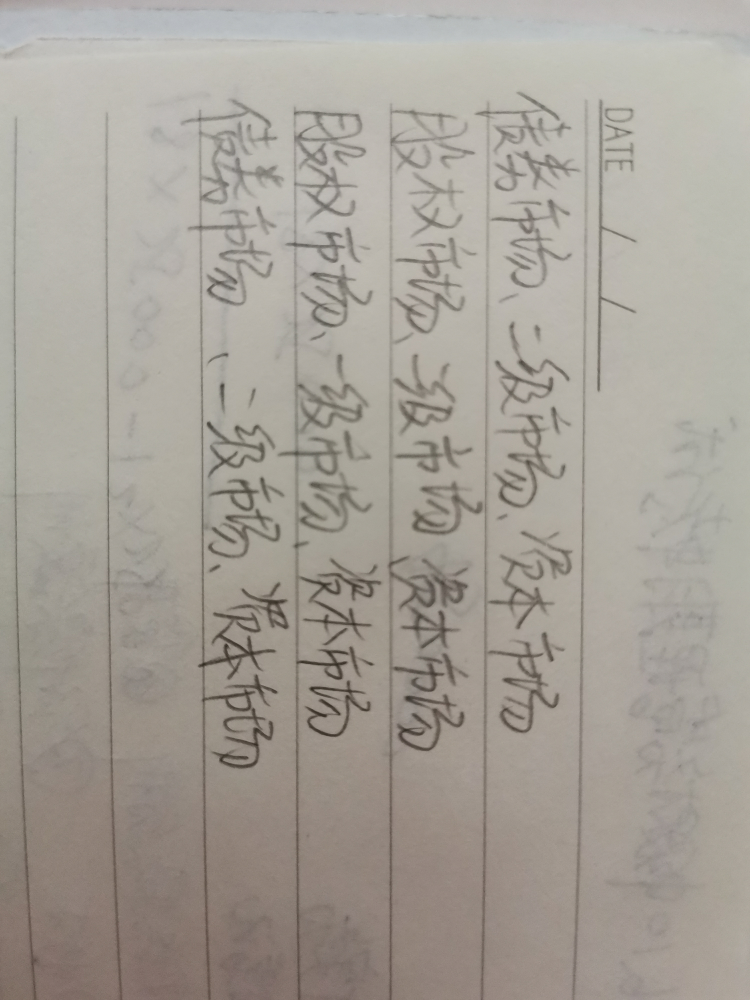 DATE / /
债券市场、二级市场、资本市场
股权市场、二级市场、资本市场
股权市场、一级市场、资本市场
债券市场、二级市场、资本市场